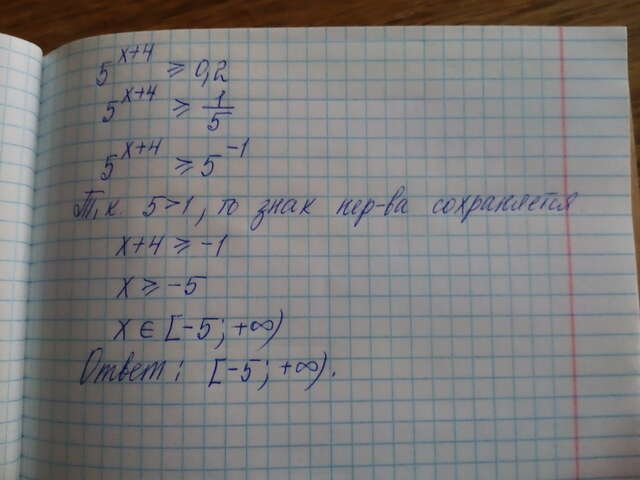 5^{x+4} ⩾ 0,2
5^{x+4} ⩾ 1/5
5^{x+4} ⩾ 5^{-1}
Т,к. 5>1, то знак нер-ва сохраняется
x+4 ⩾ -1
x ⩾ -5
x ∈ [-5; +∞)
Ответ: [-5; +∞).